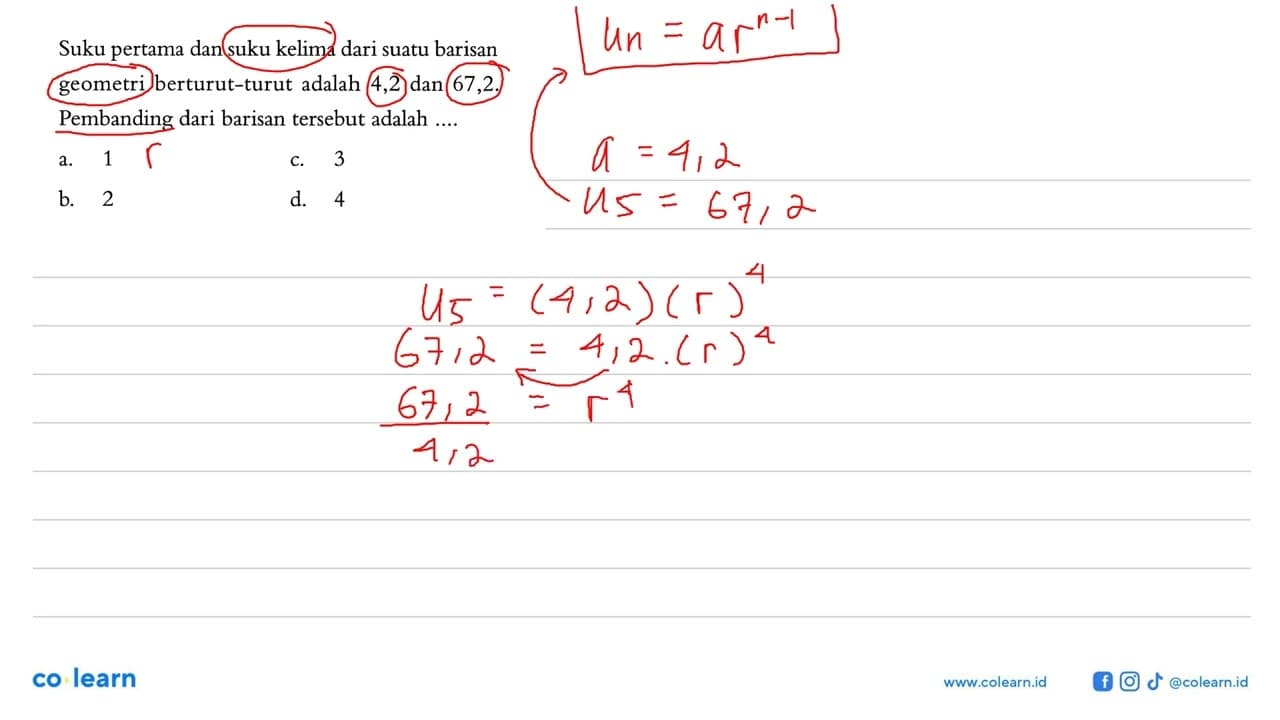 Suku pertama dan suku kelima dari suatu barisan
geometri berturut-turut adalah 4,2 dan 67,2.
Pembanding dari barisan tersebut adalah ....
a. 1 r c. 3
b. 2 d. 4
Un = ar^{n-1}
a = 4,2
U5 = 67,2
U5 = (4,2)(r)^4
67,2 = 4,2.(r)^4
67,2 = r^4
4,2
co learn
www.colearn.id @colearn.id